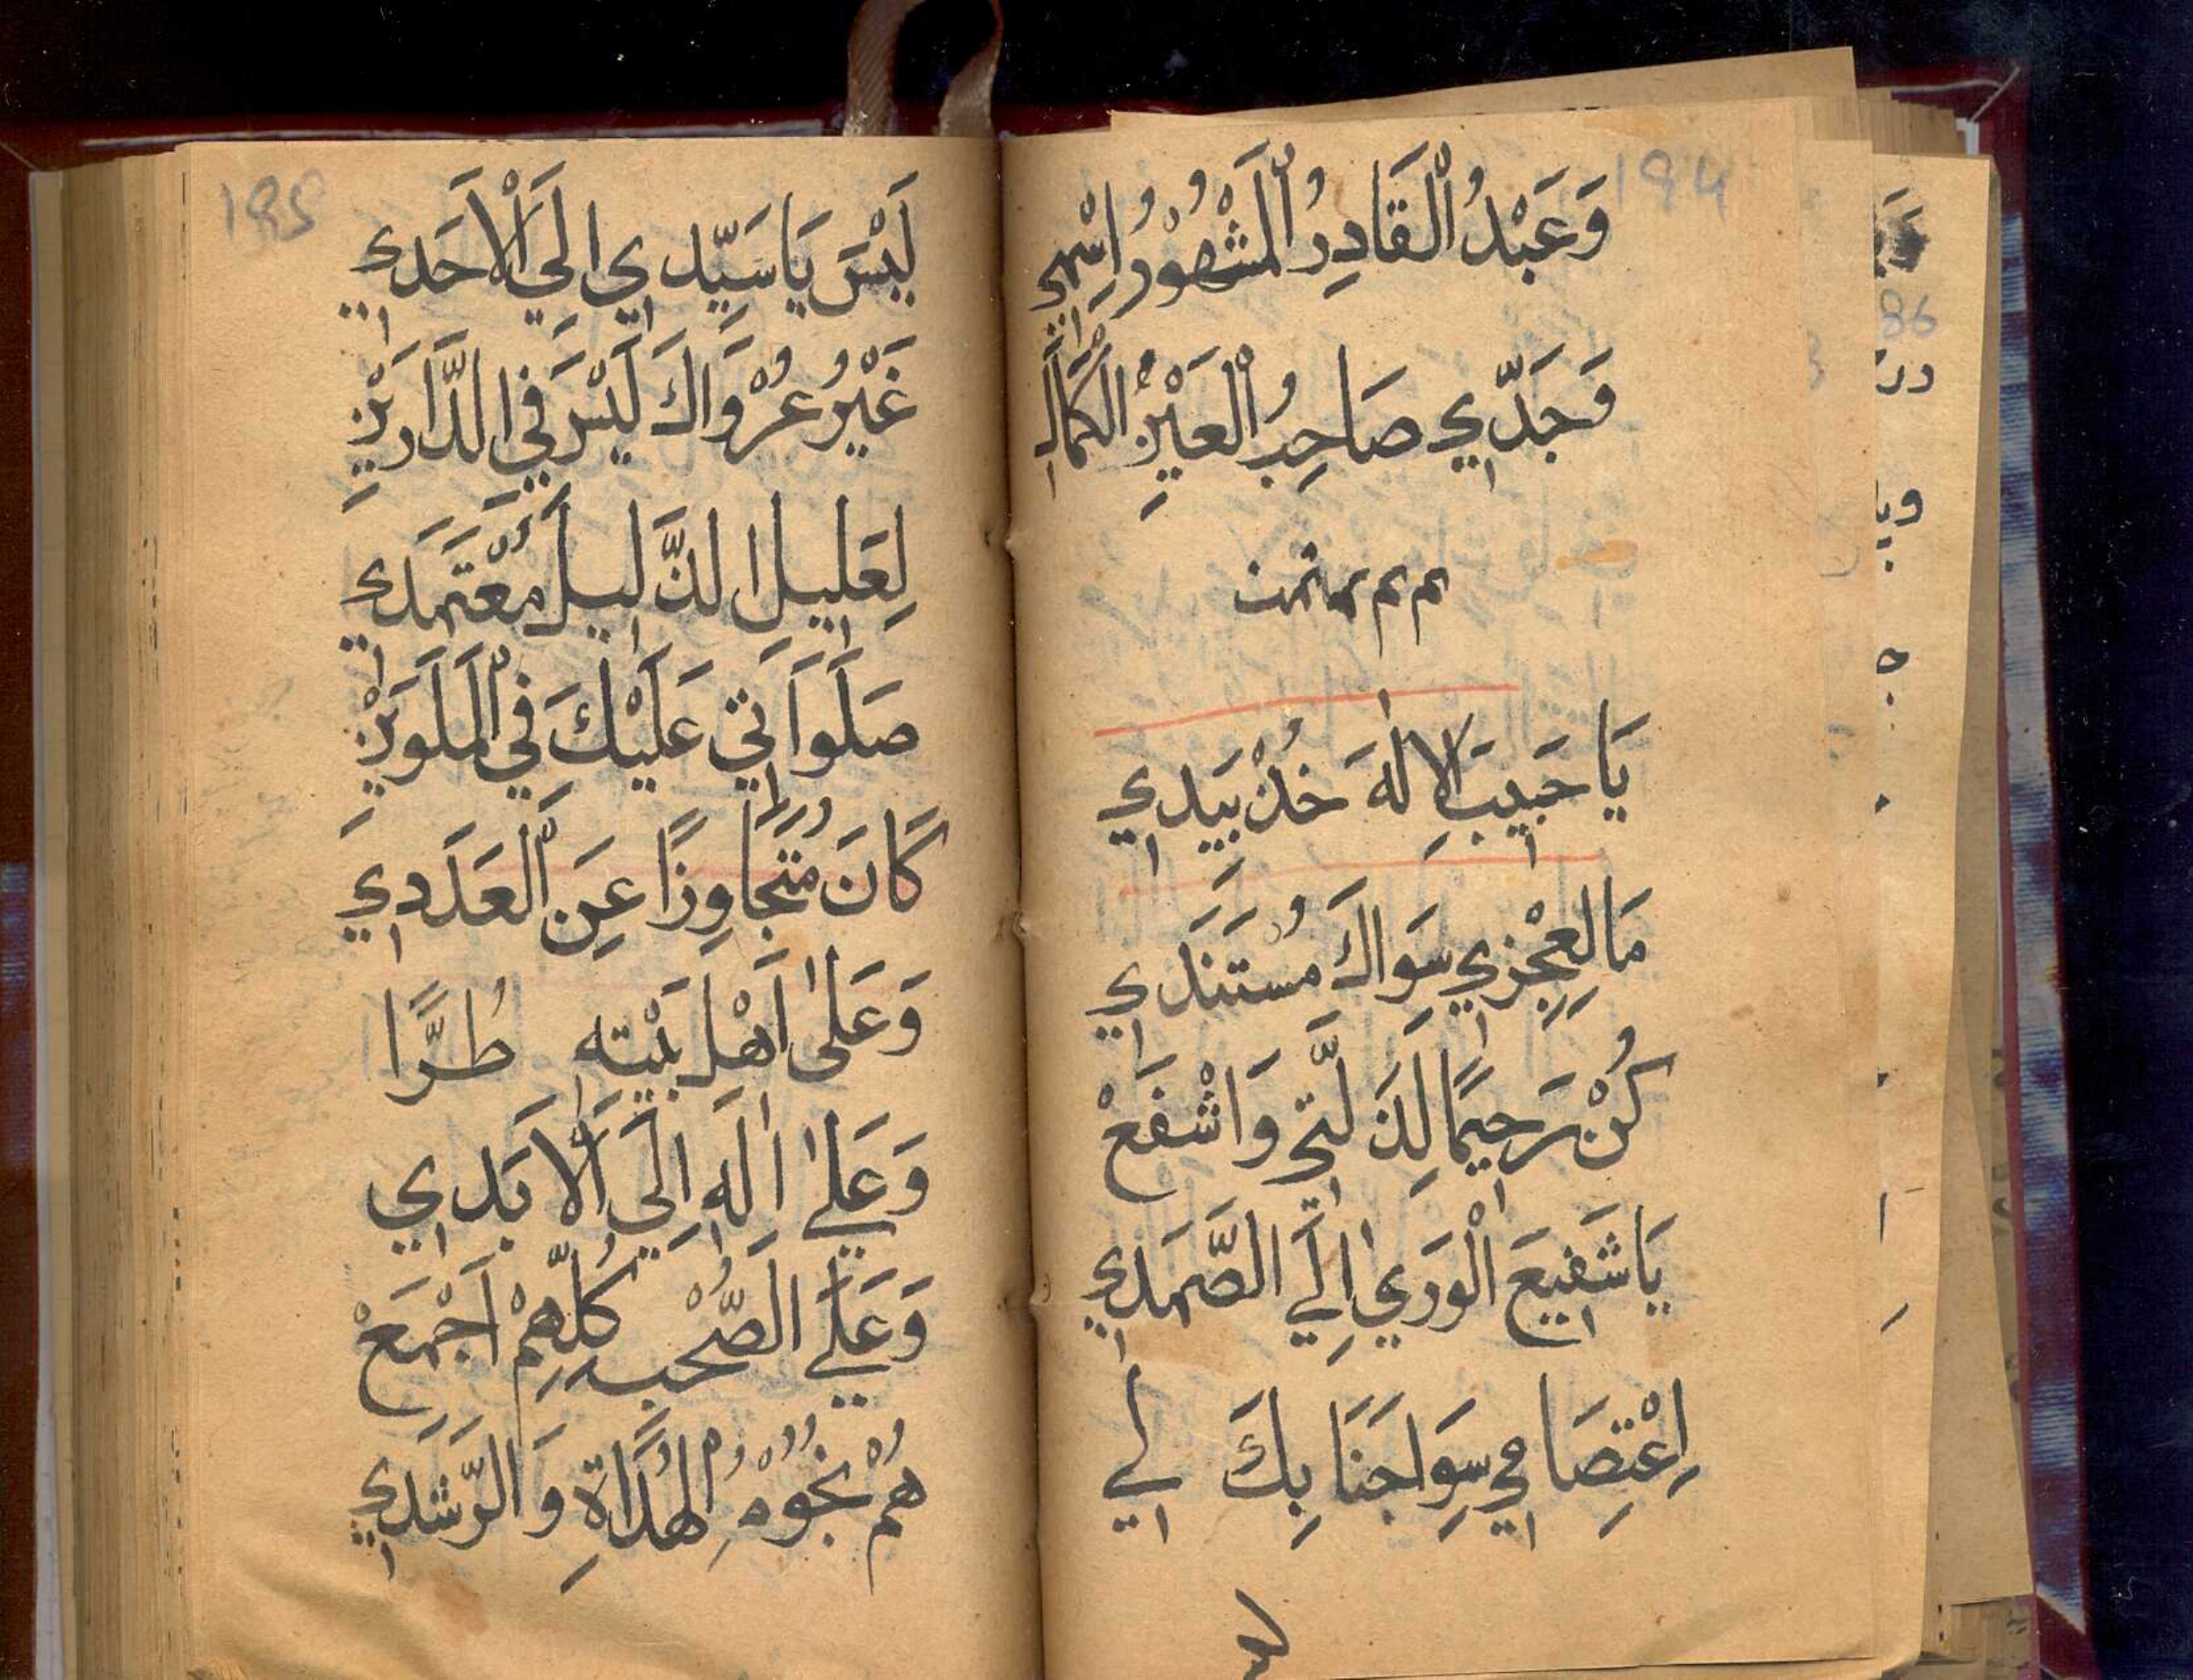 194
وَعَبْدُ الْقَادِرُ الْمَشْهُوْرُ اِسْمِي
وَجَدِّي صَاحِبُ الْعَيْنِ الْكَمَالِ
م م م تمت
يَا حَبِيبَ الْاِلٰهَ خُذْ بِيَدِي
مَا لِعِجْزِي سِوَاكَ مُسْتَنَدِي
كُنْ رَحِيمًا لِذَلَّتِي وَاشْفَعْ
يَا شَفِيعَ الْوَرٰي اِلَي الصَّمَدِي
اِعْتِصَامِي سِوَا جَنَابِكَ لِي
لَيْسَ يَا سَيِّدِي اِلَي الْاَحَدِي
غَيْرُ عُرْوَاكَ لَيْسَ فِي الدَّارَيْنِ
لِعَلِيلِ الذَّلِيلِ مُعْتَمَدِي
صَلَوَاتِي عَلَيْكَ فِي الْمَلَوَيْنِ
كَانَ مُتَجَاوِزًا عَنِ الْعَدَدِي
وَعَلٰى اَهْلِ بَيْتِهِ طُرًّا
وَعَلٰے اٰلِهِ اِلَي الْاَبَدِي
وَعَلَے الصُّحْبِ كُلِّهِمْ اَجْمَعْ
هُمْ نُجُوْمُ الْهُدَاةِ وَالرَّشَدِي